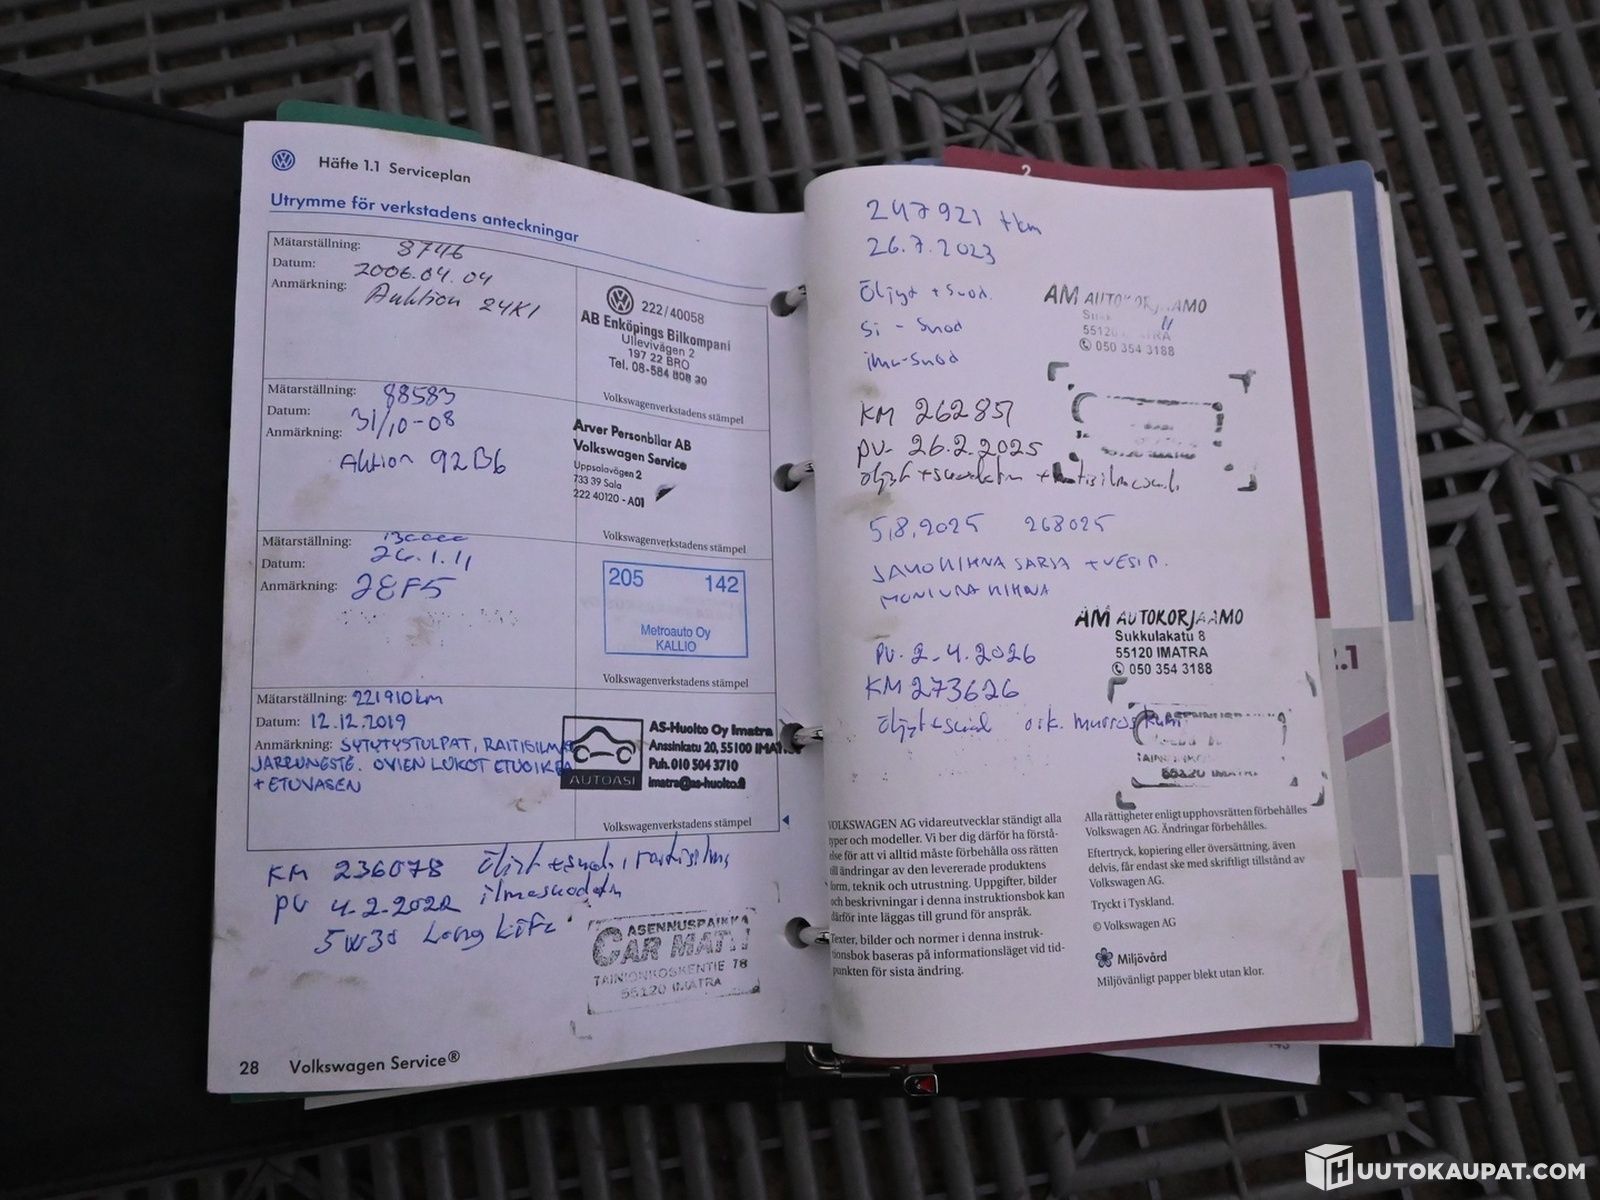 Häfte 1.1 Serviceplan
Utrymme för verkstadens anteckningar
Mätarställning: 8746
Datum: 2006.04.04
Anmärkning: Auktion 24K1
222/40058
AB Enköpings Bilkompani
Ullevivägen 2
197 22 BRO
Tel. 08-584 808 30
Volkswagenverkstadens stämpel
Mätarställning: 88583
Datum: 31/10-08
Anmärkning: Aktion 92B6
Arver Personbilar AB
Volkswagen Service
Uppsalavägen 2
733 39 Sala
222 40120 - A01
Volkswagenverkstadens stämpel
Mätarställning:
Datum: 26.1.11
Anmärkning: 2EF5
205 142
Metroauto Oy
KALLIO
Volkswagenverkstadens stämpel
Mätarställning: 221910km
Datum: 12.12.2019
Anmärkning: SYTYTYSTULPAT, RAITISILMA
JARRUNESTE. OVIEN LUKOT ETUOIKEA
+ ETUVASEN
AS-Huolto Oy Imatra
Anssinkatu 20, 55100 IMATRA
Puh. 010 504 3710
imatra@as-huolto.fi
AUTOASI
Volkswagenverkstadens stämpel
KM 236078
PV 4.2.2022
5W30 Long Life
ASENNUSPAIKKA
CAR MATH
TAINIONKOSKENTIE 78
55120 IMATRA
28 Volkswagen Service®
2
247921 tkm
26.7.2023
Öljyt + Suod.
Si - Suod
ilma-Suod
AM AUTOKORJAAMO
55120 IMATRA
050 354 3188
KM 262857
PV. 26.2.2025
5.8.2025 268025
JAKOHIHNA SARJA + VESIP.
MONIURA HIHNA
AM AUTOKORJAAMO
Sukkulakatu 8
55120 IMATRA
050 354 3188
PV. 2.4.2026
KM 273626
55120 IMATRA
2.1
VOLKSWAGEN AG vidareutvecklar ständigt alla
typer och modeller. Vi ber dig därför ha förstå-
else för att vi alltid måste förbehålla oss rätten
till ändringar av den levererade produktens
form, teknik och utrustning. Uppgifter, bilder
och beskrivningar i denna instruktionsbok kan
därför inte läggas till grund för anspråk.
Texter, bilder och normer i denna instruk-
tionsbok baseras på informationsläget vid tid-
punkten för sista ändring.
Alla rättigheter enligt upphovsrätten förbehålles
Volkswagen AG. Ändringar förbehålles.
Eftertryck, kopiering eller översättning, även
delvis, får endast ske med skriftligt tillstånd av
Volkswagen AG.
Tryckt i Tyskland.
© Volkswagen AG
Miljövård
Miljövänligt papper blekt utan klor.
HUUTOKAUPAT.COM